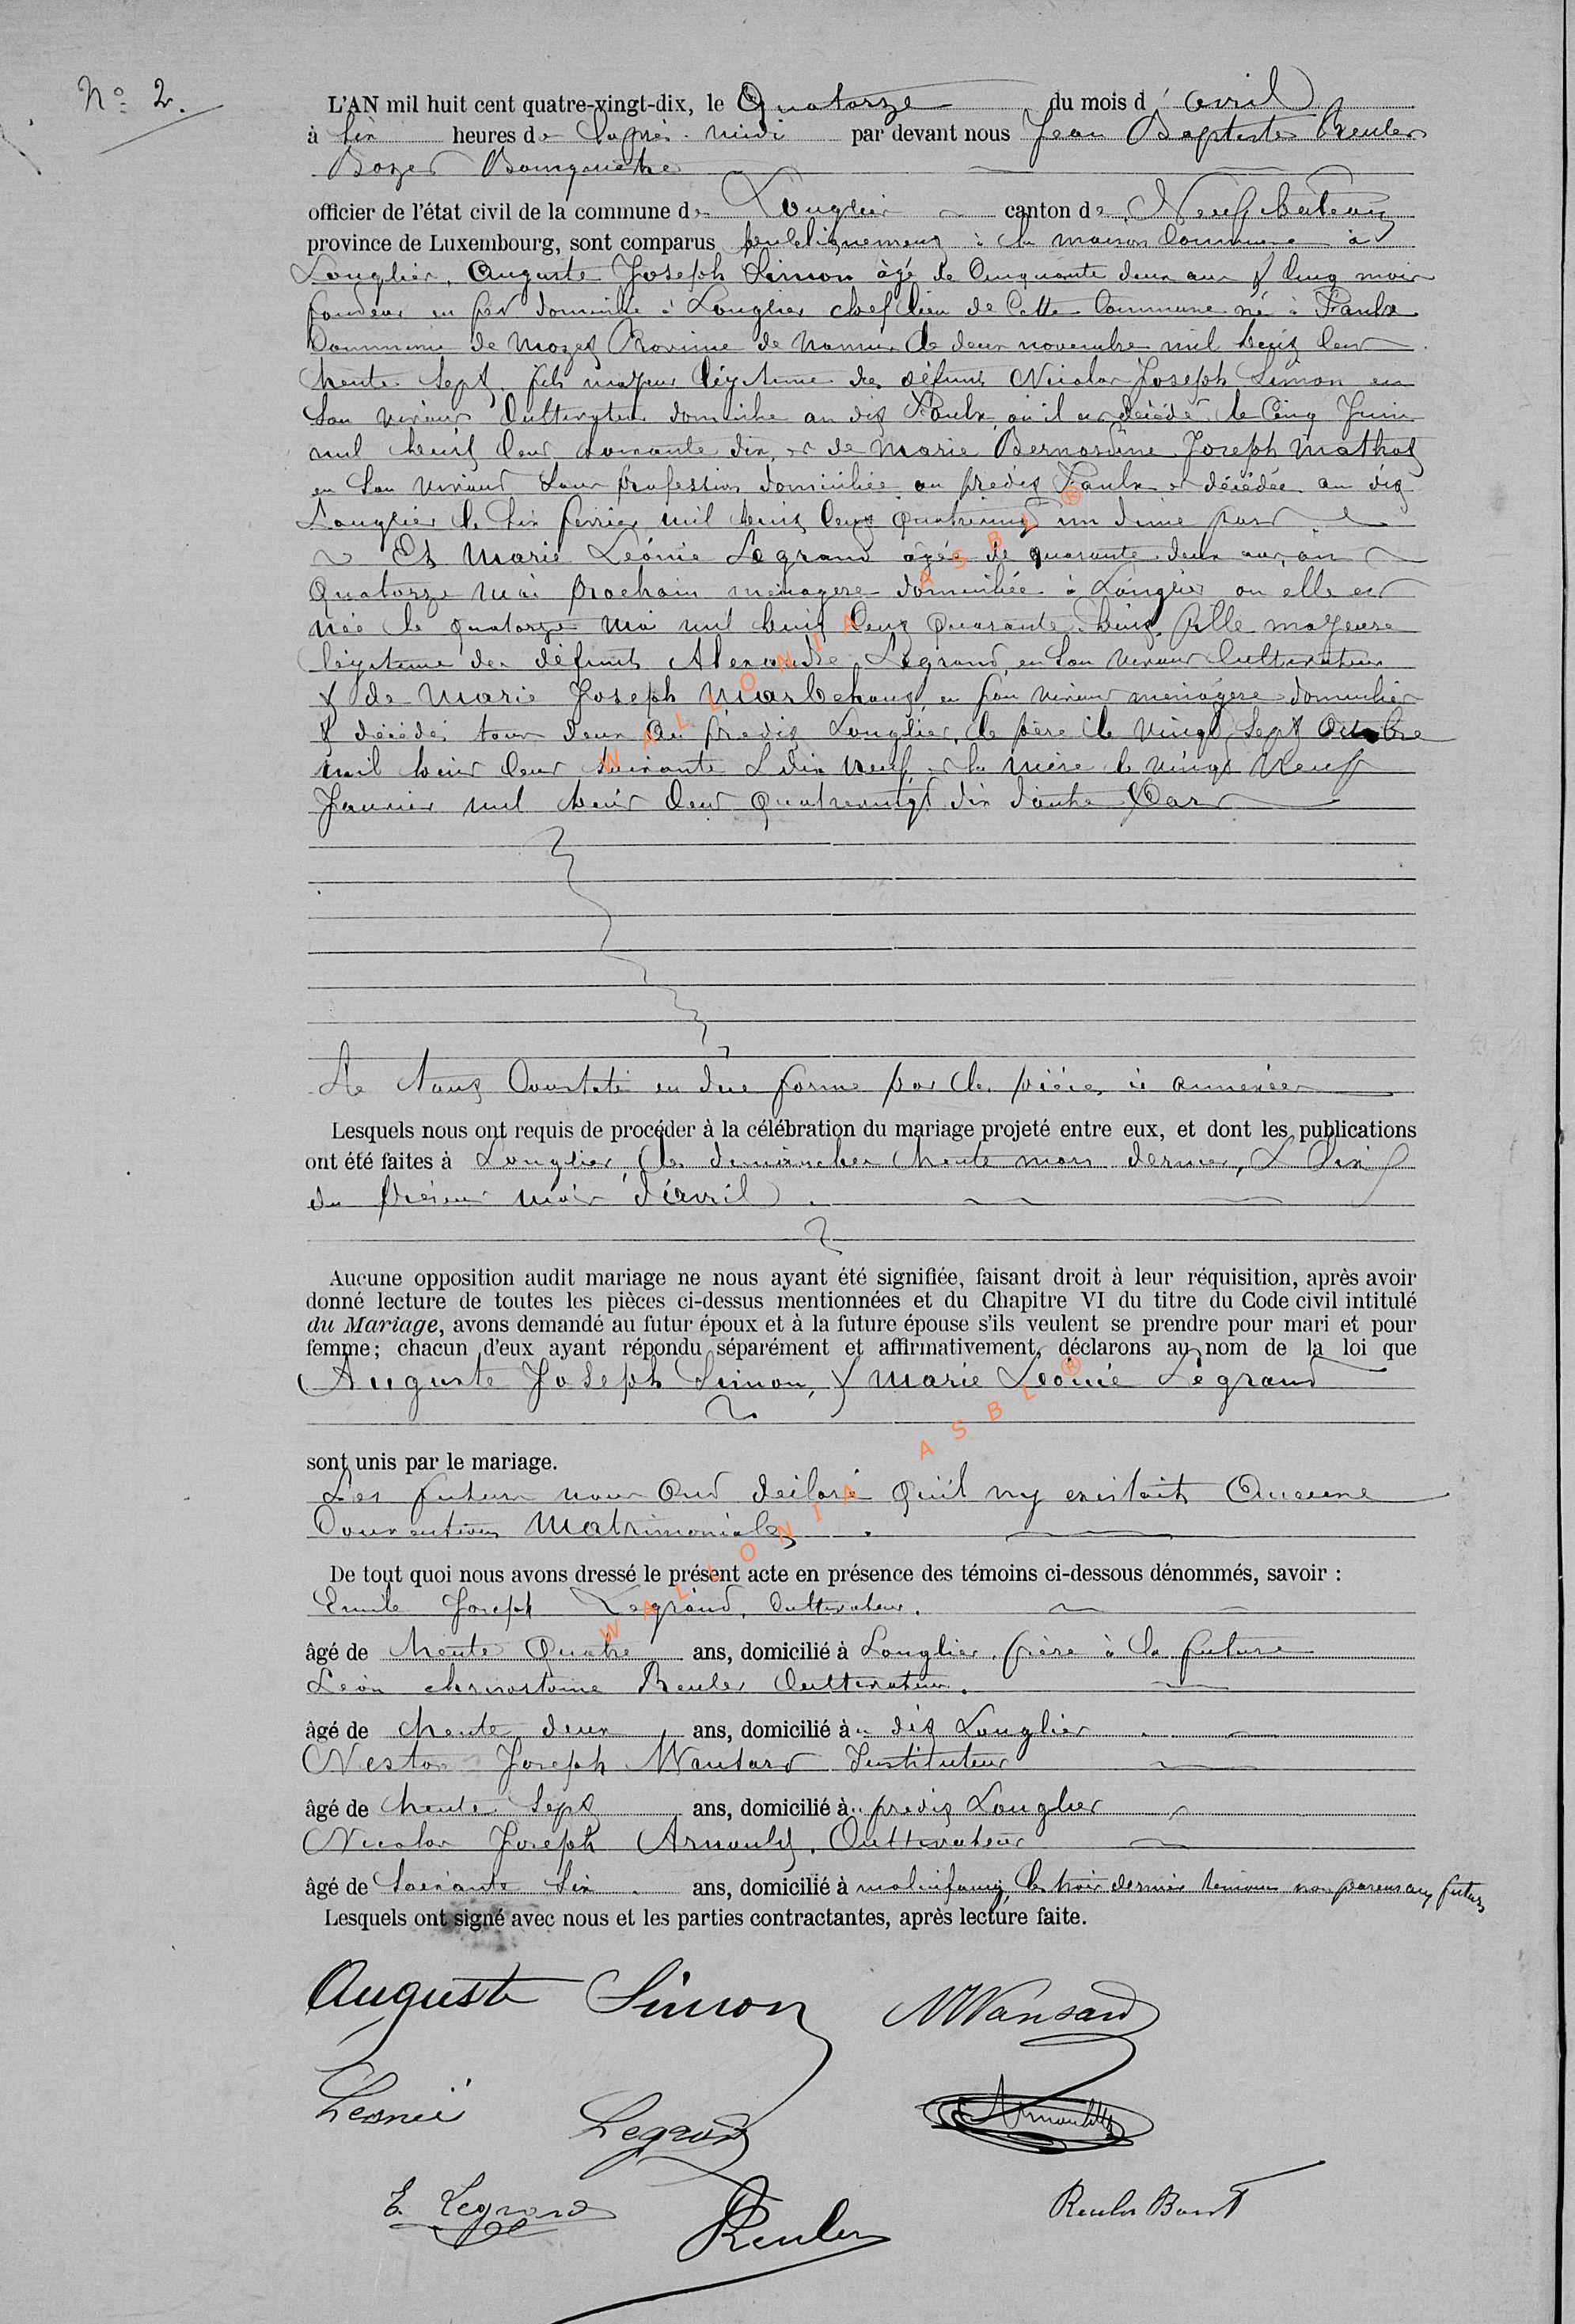 N° 2.
L'AN mil huit cent quatre-vingt-dix, le Quatorze du mois d' avril
à Six heures de l'après-midi par devant nous Jean Baptiste Reuler
Bourgmestre
officier de l'état civil de la commune de Longlier canton de Neufchateau
province de Luxembourg, sont comparus publiquement à la maison Commune à
Longlier, Auguste Joseph Simon âgé de Cinquante deux ans & Cinq mois
fondeur en fer domicilié à Longlier chef lieu de Cette Commune né à Faulx
Commune de Mozet Province de Namur le deux novembre mil huit Cent
trente Sept, fils majeur légitime des défunts Nicolas Joseph Simon en
Son vivant Cultivateur domicilié au dit Faulx, où il est décédé le Cinq Juin
mil huit Cent Soixante dix, et de Marie Bernardine Joseph Mathot
en Son vivant Sans profession domiciliée au predit Faulx et décédée au dit
Longlier le Six février mil huit Cent quatrevingt un d'une part
Et Marie Léonie Legrand âgée de quarante deux ans, au
Quatorze Mai prochain ménagère domiciliée à Longlier où elle est
née le quatorze Mai mil huit Cent Quarante huit, fille majeure
légitime des défunts Alexandre Legrand, en Son vivant Cultivateur
& de Marie Joseph Marbehant, en son vivant ménagère domiciliés
& décédés tous deux au predit Longlier, le père le vingt Sept Octobre
mil huit Cent Soixante & dix neuf et la mère le vingt Neuf
Janvier mil huit Cent Quatrevingt dix d'autre Part
Le tout Constaté en due forme par les pièces ci annexées
Lesquels nous ont requis de procéder à la célébration du mariage projeté entre eux, et dont les publications
ont été faites à Longlier, les dimanches trente mars dernier, & Six
du présent mois d'avril.
Aucune opposition audit mariage ne nous ayant été signifiée, faisant droit à leur réquisition, après avoir
donné lecture de toutes les pièces ci-dessus mentionnées et du Chapitre VI du titre du Code civil intitulé
du Mariage, avons demandé au futur époux et à la future épouse s'ils veulent se prendre pour mari et pour
femme; chacun d'eux ayant répondu séparément et affirmativement, déclarons au nom de la loi que
Auguste Joseph Simon, & Marie Léonie Legrand
sont unis par le mariage.
Les futurs nous Ont déclaré Qu'il n'y existait Aucune
Convention Matrimoniale.
De tout quoi nous avons dressé le présent acte en présence des témoins ci-dessous dénommés, savoir :
Emile Joseph Legrand, Cultivateur.
âgé de trente Quatre ans, domicilié à Longlier, frère à la future
Léon chrisostome Reuler Cultivateur.
âgé de trente deux ans, domicilié à u dit Longlier
Nestor Joseph Wansard Instituteur
âgé de trente Sept ans, domicilié à u predit Longlier
Nicolas Joseph Arnould, Cultivateur
âgé de Soixante Six ans, domicilié à molinfaing, les trois derniers témoins non parents aux futurs
Lesquels ont signé avec nous et les parties contractantes, après lecture faite.
Auguste Simon NWansard
Léonie Legrand Arnould
E. Legrand Reuler Reuler Bount
WALLONIA ASBL ®
WALLONIA ASBL ®